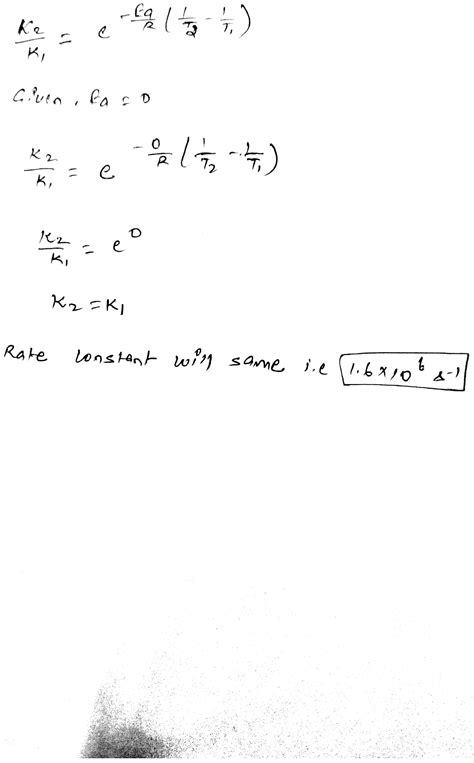 K2/K1 = e^(-Ea/R (1/T2 - 1/T1))
Given, Ea = 0
K2/K1 = e^(-0/R (1/T2 - 1/T1))
K2/K1 = e^0
K2 = K1
Rate constant will same i.e 1.6 × 10^6 s^-1